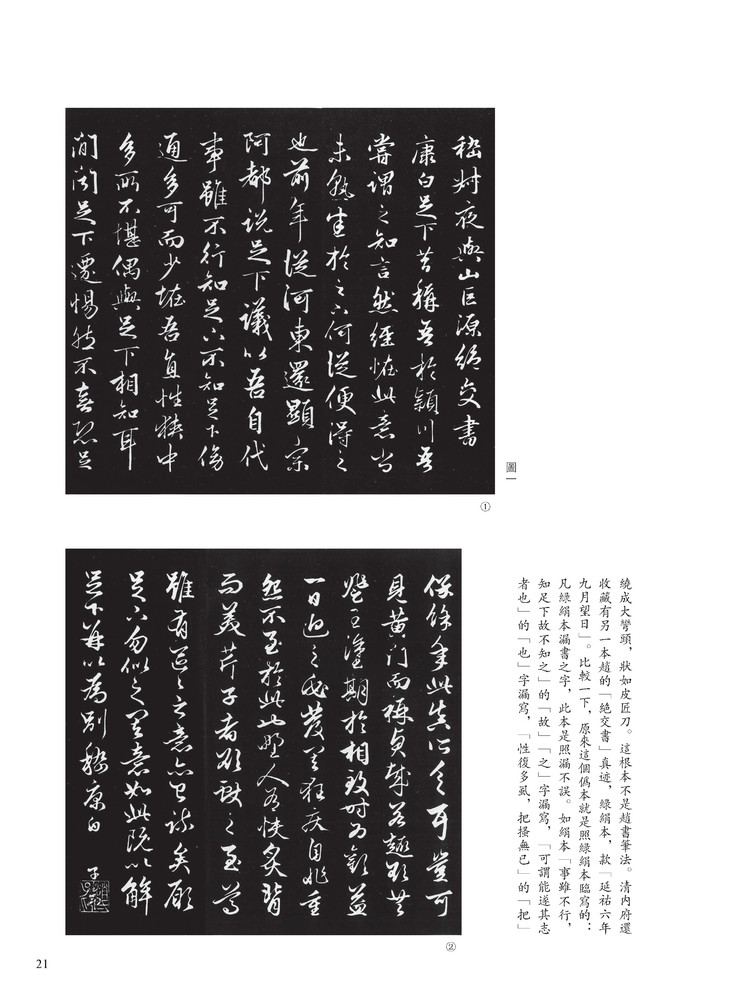 嵇叔夜與山巨源絕交書
康白足下昔稱吾於潁川吾
嘗謂之知言然經怪此意尚
未熟悉於足下何從便得之
也前年從河東還顯宗
阿都說足下議以吾自代
事雖不行知足下不知足下傍
通多可而少怪吾直性狹中
多所不堪偶與足下相知耳
間聞足下遷惕然不喜恐足
圖一
①
繞成大彎頭，狀如皮匠刀。這根本不是趙書筆法。清内府還
收藏有另一本趙的「絕交書」真迹，綠絹本，款「延祐六年
九月望日」。比較一下，原來這個僞本就是照綠絹本臨寫的：
凡綠絹本漏書之字，此本是照漏不誤。如絹本「事雖不行，
知足下故不知之」的「故」「之」字漏寫，「可謂能遂其志
者也」的「也」字漏寫，「性復多虱，把搔無已」的「把」
保餘年此真所乏耳豈可
見黃門而稱貞哉若趣欲共
登王塗期於相致時為歡益
一旦迫之必發其狂疾自非重
怨不至於此也野人有快炙背
而美芹子者欲獻之至尊
雖有區區之意亦已疏矣願
足下勿似之其意如此既以解
足下并以為別嵇康白
②
21